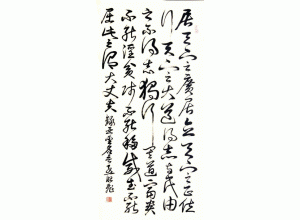 居天下之廣居立天下之正位
行天下之大道得志與民由
之不得志獨行其道富貴
不能淫貧賤不能移威武不能
屈此之謂大丈夫